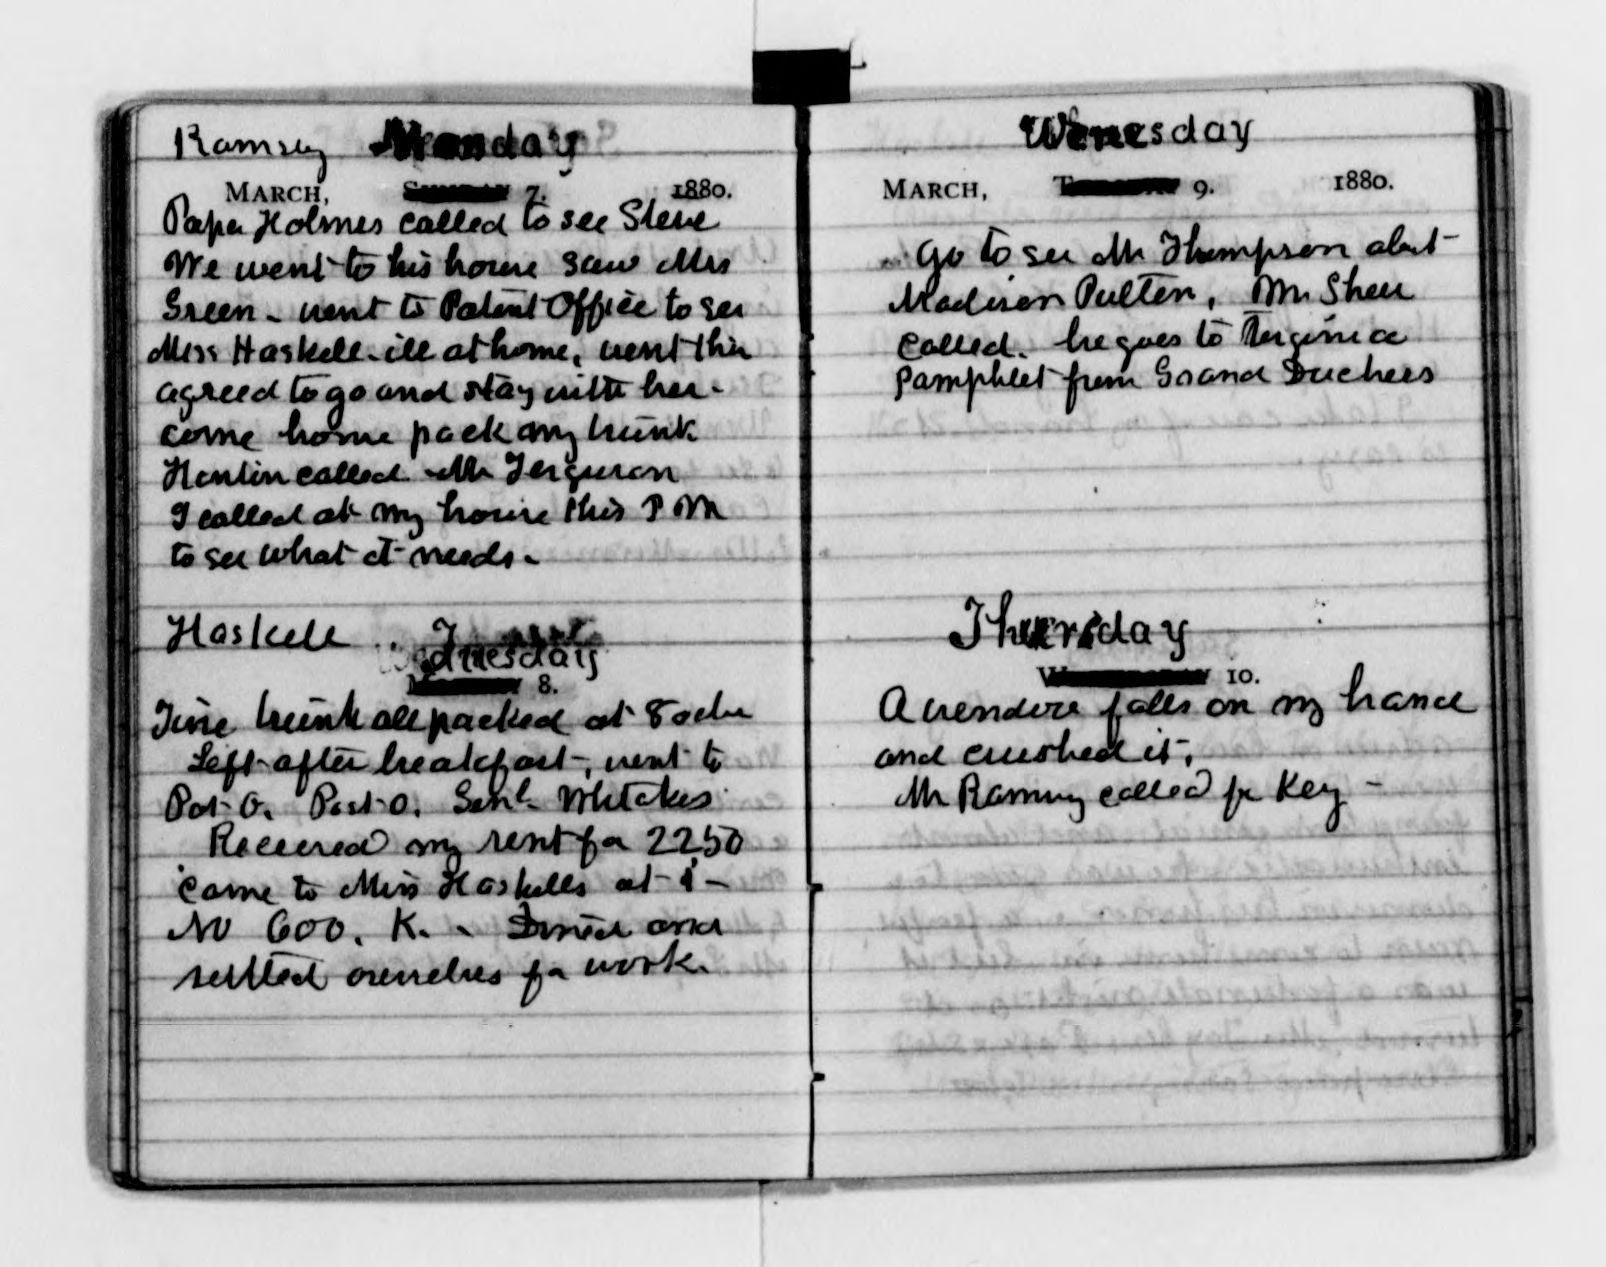 Ramsey Monday
MARCH, 7. 1880.
Papa Holmes called to see Steve
We went to his house saw Mrs
Green - went to Patent Office to see
Miss Haskell - ill at home, went ther
agreed to go and stay with her -
come home pack my trunk
called Mr Ferguson
I called at my house this P M
to see what it needs -
Haskell
8.
trunk all packed at 8 oclk
Left after breakfast, went to
Pat O. Post O. Genl Whitakes
Received my rent for 2250
came to Miss Haskells at 1 -
No 600. K. - Dined and
settled ourselves for work.
Wenesday
MARCH, 9. 1880.
Go to see Mr Thompson abut
Madison Pulten, Mr Sheu
called. he goes to Virginia
Pamphlet from Grand Duchess
Thursday
10.
A window falls on my hand
and crushed it,
Mr Ramsey called for Key -